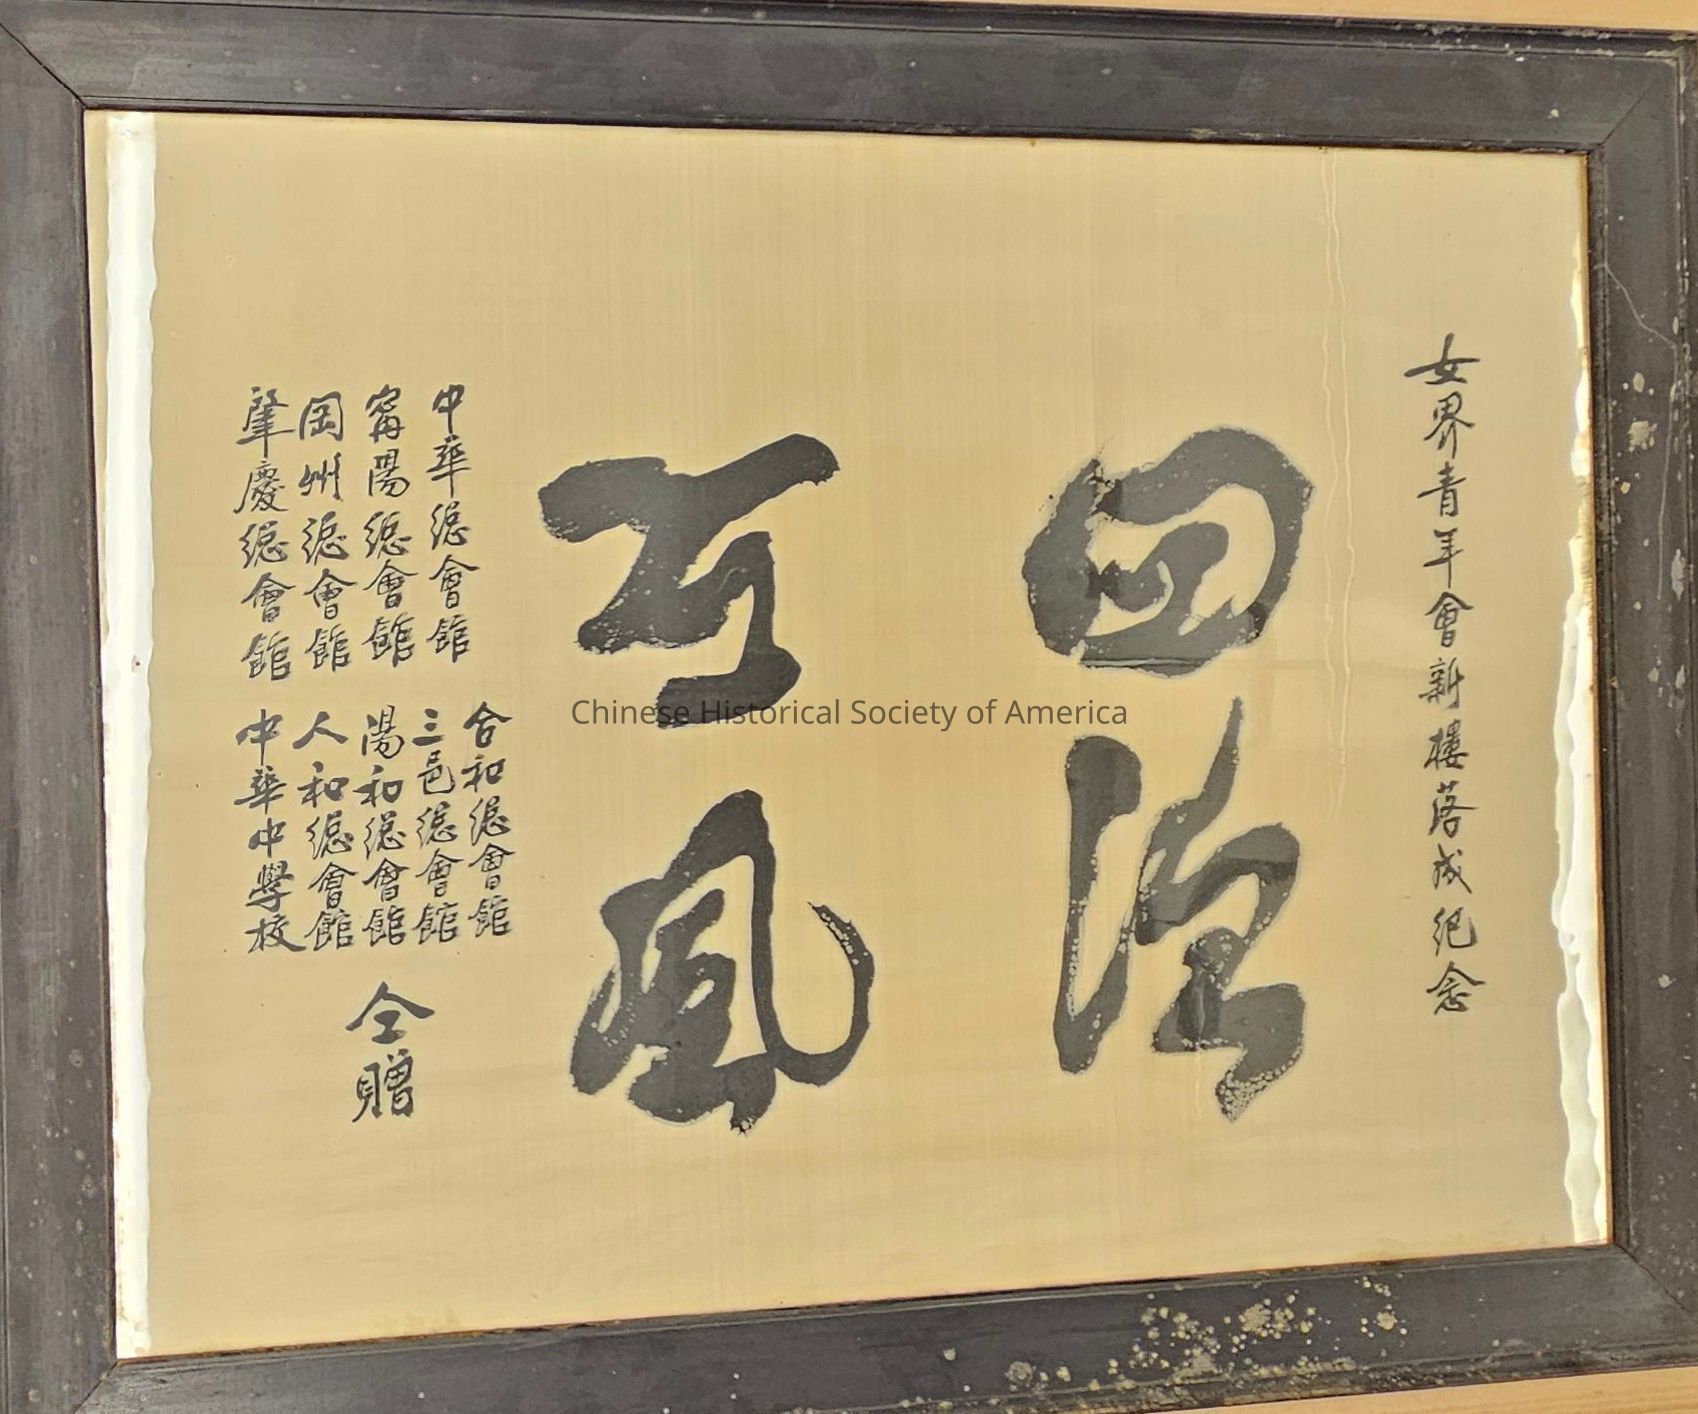 女界青年會新樓落成紀念
四德
可風
中華總會館
寗陽總會館
岡州總會館
肇慶總會館
合和總會館
三邑總會館
陽和總會館
人和總會館
中華中學校
仝贈
Chinese Historical Society of America